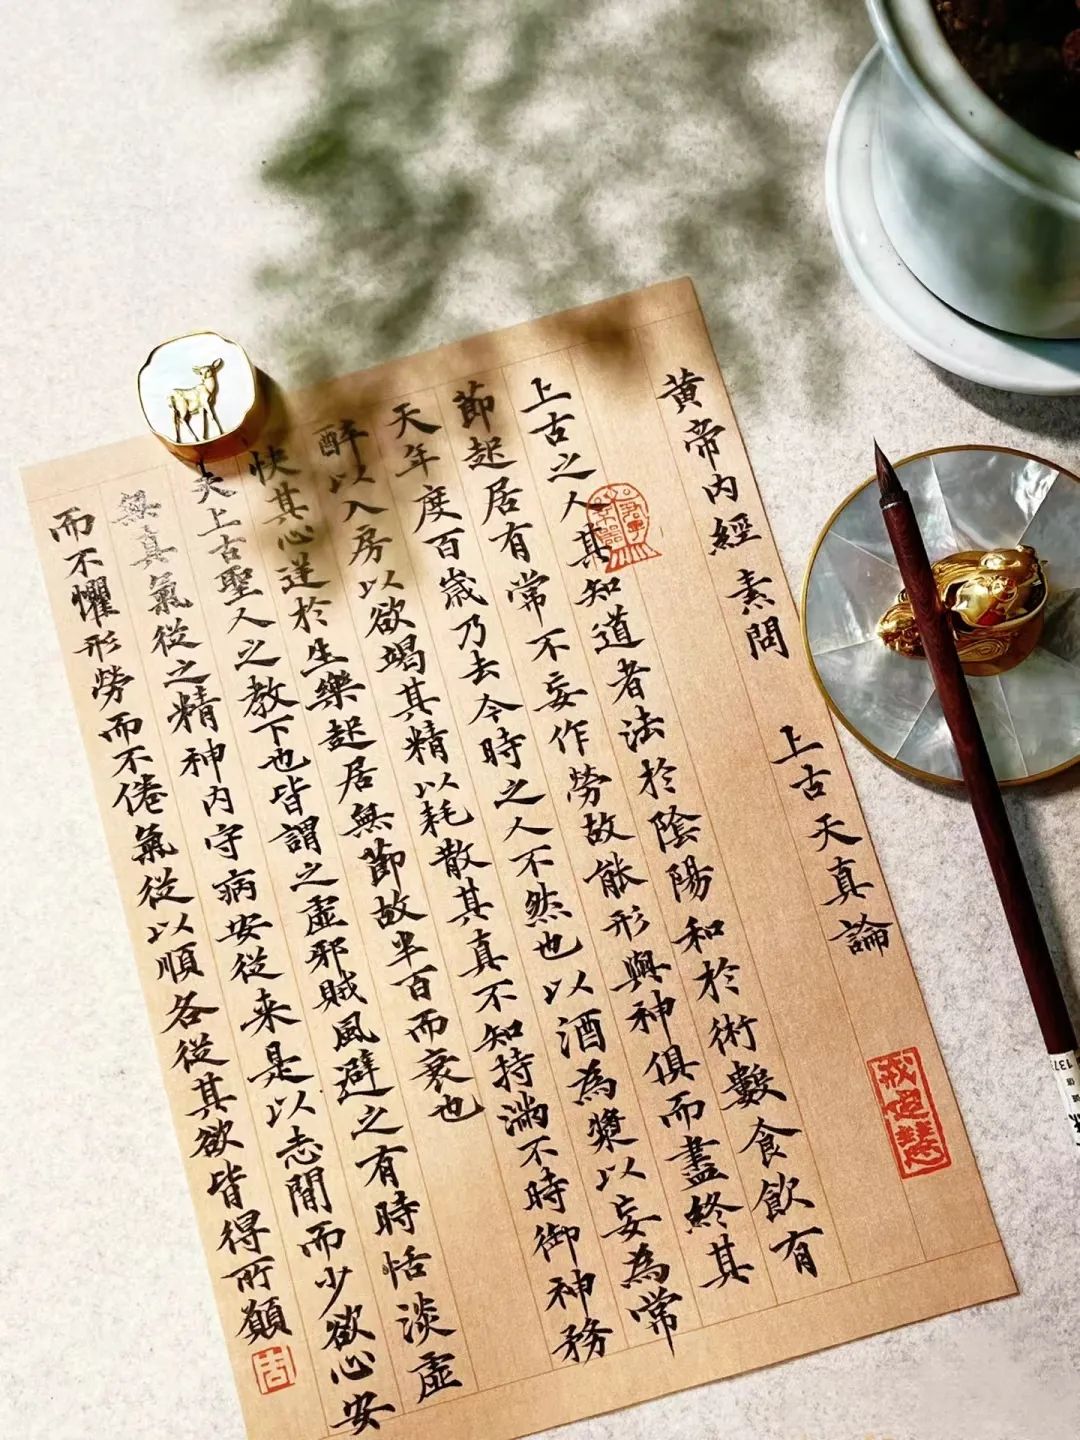 黄帝内經 素問 上古天真論
上古之人其知道者法於陰陽和於術數食飲有
節起居有常不妄作勞故能形與神俱而盡終其
天年度百歲乃去今時之人不然也以酒為漿以妄為常
醉以入房以欲竭其精以耗散其真不知持滿不時御神務
快其心逆於生樂起居無節故半百而衰也
夫上古聖人之教下也皆謂之虛邪賊風避之有時恬淡虛
無真氣從之精神内守病安從来是以志閒而少欲心安
而不懼形勞而不倦氣從以順各從其欲皆得所願
137